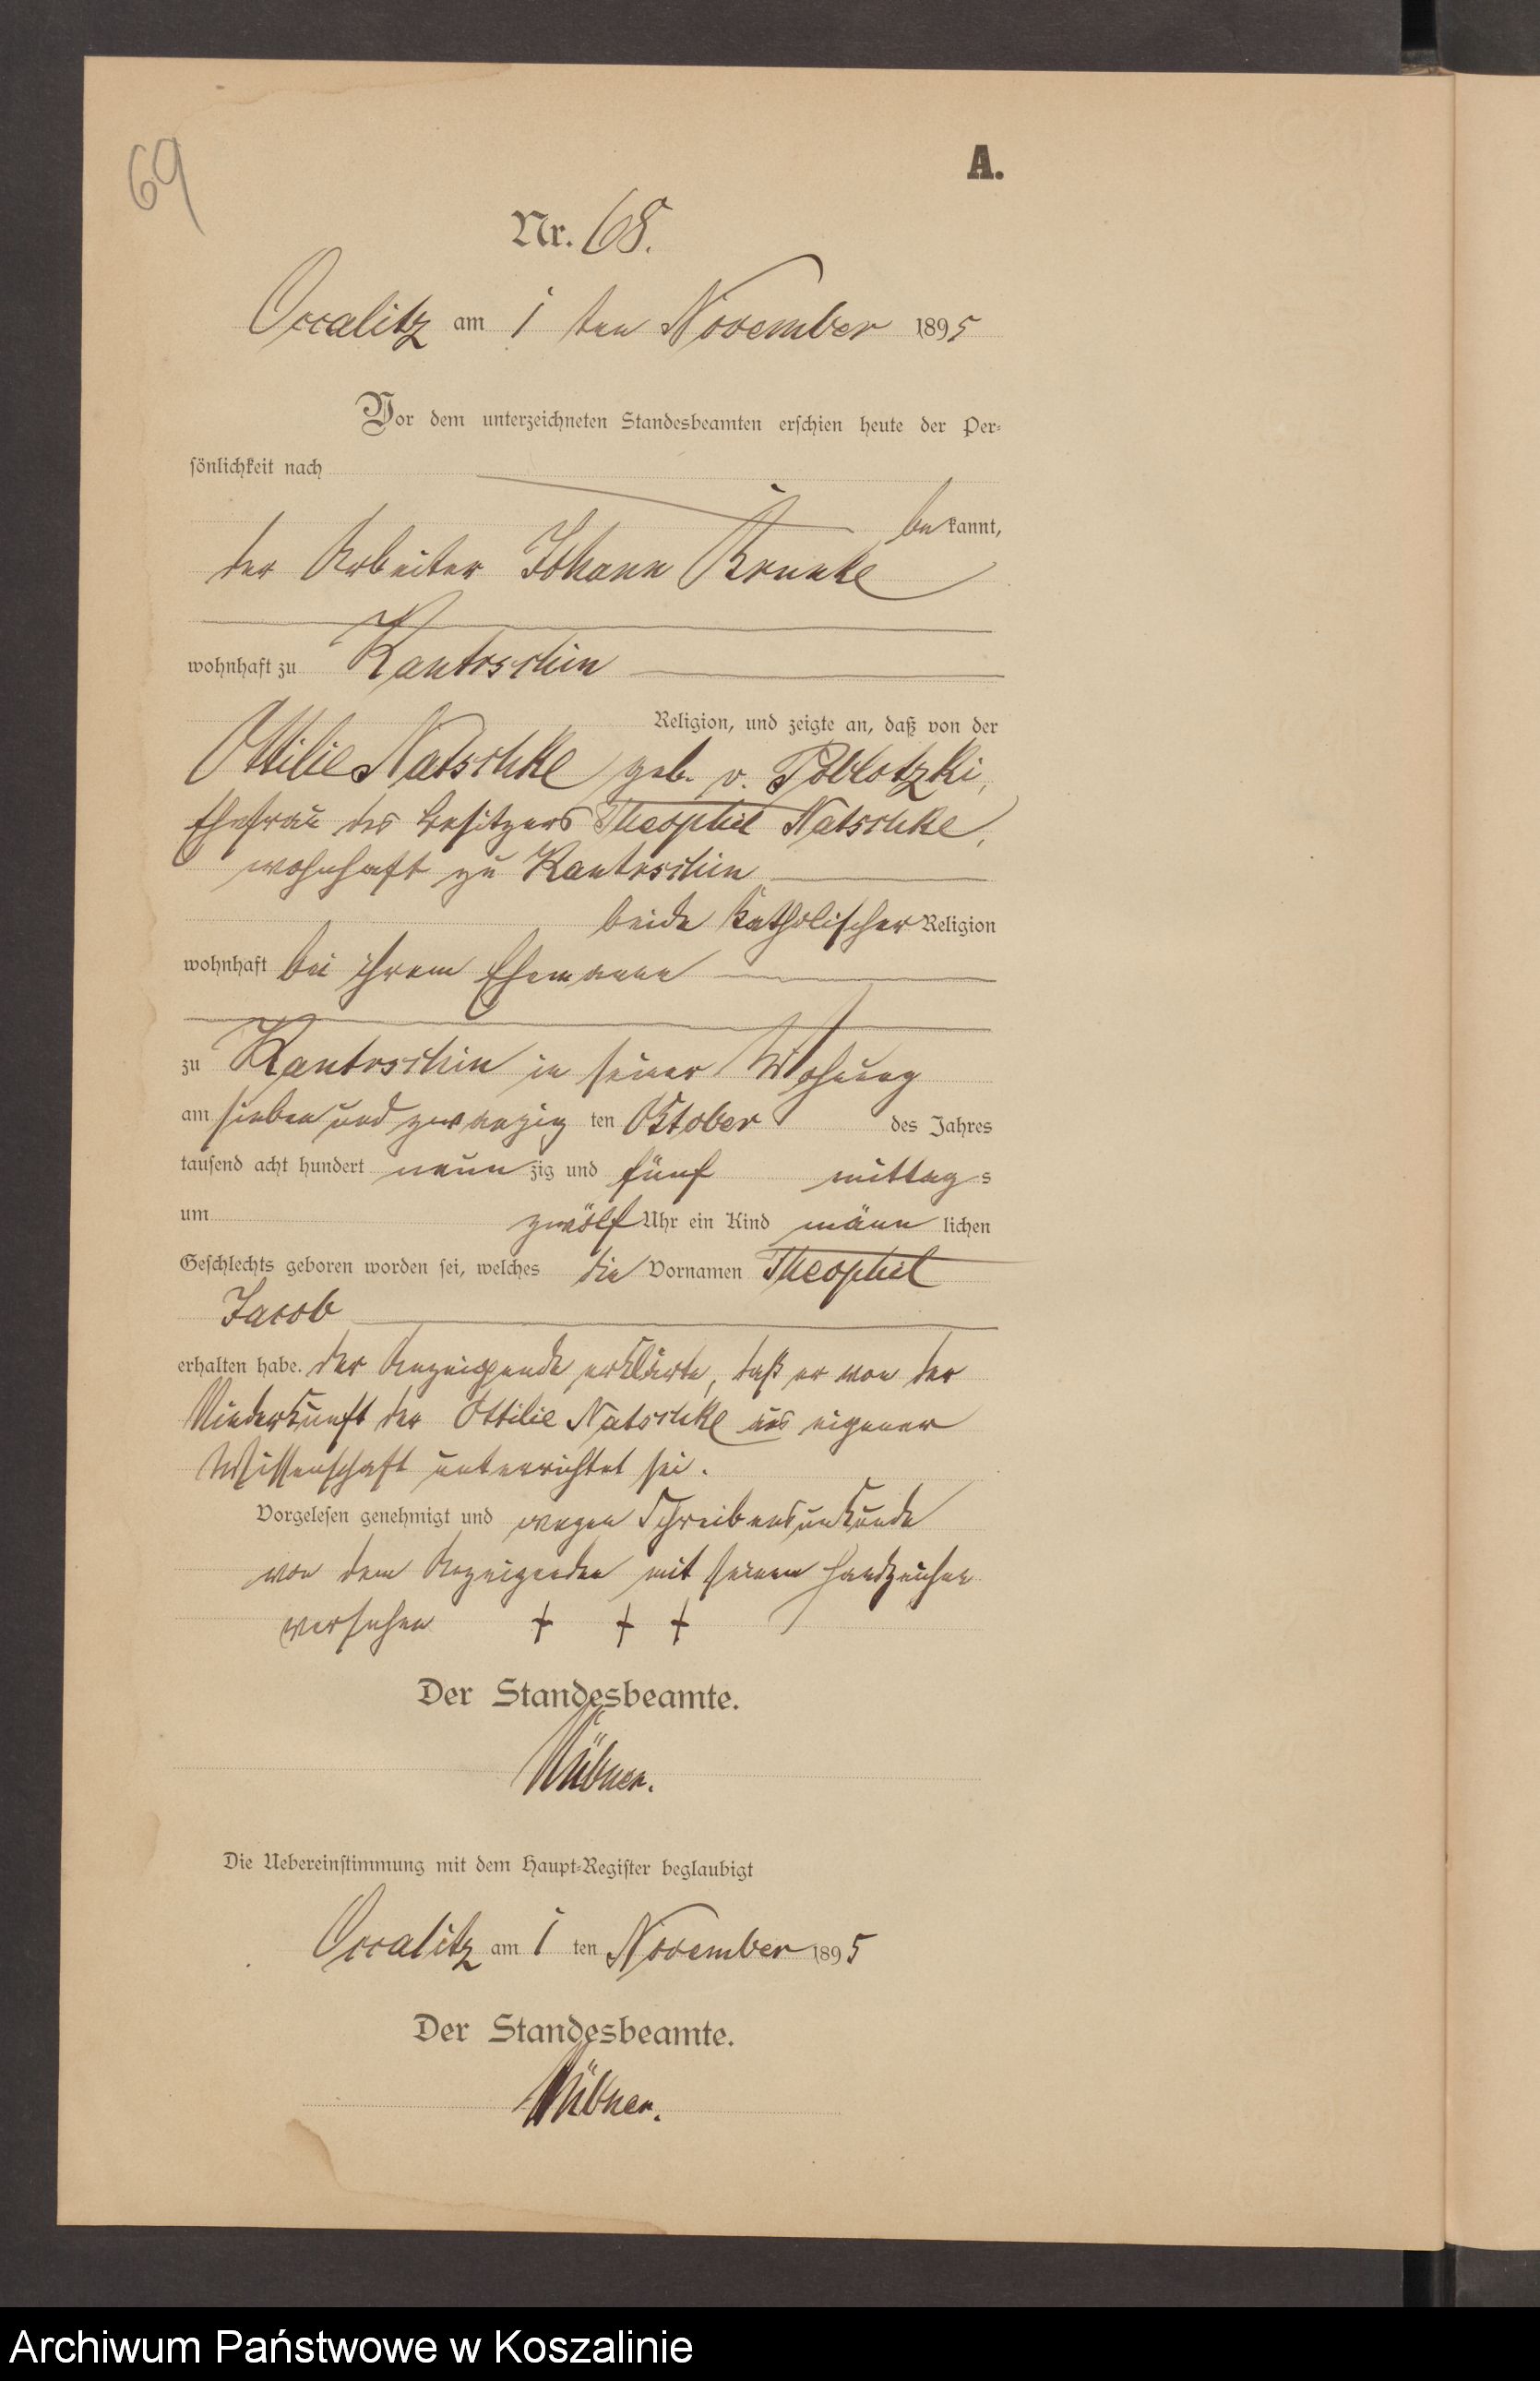 69
A.
Nr. 68.
Occalitz am 1 ten November 1895
Vor dem unterzeichneten Standesbeamten erschien heute der Per-
sönlichkeit nach
bekannt,
der Arbeiter Johann
wohnhaft zu Kantrschin
Religion, und zeigte an, daß von der
Ottilie Natschke geb. v. Poblotzki,
Ehefrau des Besitzers Theophil Natschke,
wohnhaft zu Kantrschin
beide katholischer Religion
wohnhaft bei ihrem Ehemanne
zu Kantrschin in seiner Wohnung
am sieben und zwanzig ten Oktober des Jahres
tausend acht hundert neunzig und fünf mittags
um zwölf Uhr ein Kind männlichen
Geschlechts geboren worden sei, welches die Vornamen Theophil
Jacob
erhalten habe. Der Anzeigende erklärte, daß er von der
Niederkunft der Ottilie Natschke aus eigener
Wissenschaft unterrichtet sei.
Vorgelesen genehmigt und wegen Schreibensunkunde
von dem Anzeigenden mit seinem Handzeichen
versehen + + +
Der Standesbeamte.
Die Uebereinstimmung mit dem Haupt-Register beglaubigt
Occalitz am 1 ten November 1895
Der Standesbeamte.
Archiwum Państwowe w Koszalinie